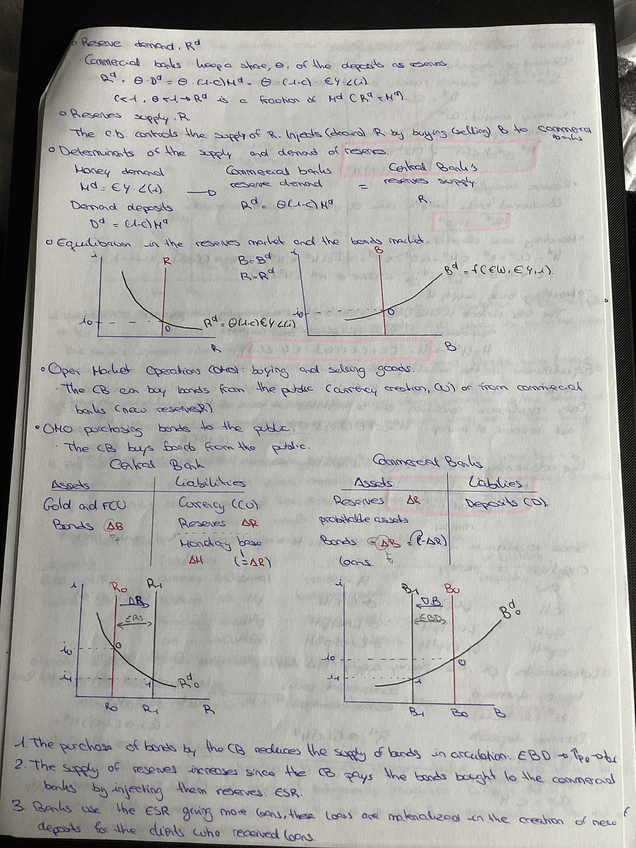 o Reserve demand, Rᵈ
Commercial banks keep a share, θ, of the deposits as reserves
Rᵈ = θ·Dᵈ = θ·(1-c)Mᵈ = θ·(1-c)·€Y·L(i)
c<1, θ<1 → Rᵈ is a fraction of Mᵈ (Rᵈ < Mᵈ)
o Reserves supply, R
The CB controls the supply of R. Injects (drains) R by buying (selling) B to commercial banks
o Determinants of the supply and demand of reserves
Money demand Commercial banks Central Bank's
Mᵈ = €Y L(i) → reserve demand = reserves supply
Demand deposits Rᵈ = θ(1-c)Mᵈ R
Dᵈ = (1-c)Mᵈ
o Equilibrium in the reserves market and the bonds market.
i R B = Bᵈ i B Bᵈ = f(€W, €Y, i)
R = Rᵈ
i₀ 0 Rᵈ = θ(1-c)€Y L(i) i₀ 0
R B
• Open Market Operations (OMO): buying and selling goods.
· The CB can buy bonds from the public (currency creation, CU) or from commercial
banks (new reserves R)
• OMO purchasing bonds to the public.
· The CB buys bonds from the public.
Central Bank Commercial Banks
Assets Liabilities Assets Liabilities
Gold and FCU Currency (CU) Reserves ΔR Deposits (D)
Bonds ΔB Reserves ΔR profitable assets
Monetary base Bonds -ΔB = (-ΔR)
ΔH (=ΔR) loans
i R₀ R₁ i B₁ B₀
ΔR ∇B Bᵈ₀
ESR EBD
i₀ 0 i₀ 0
i₁ 1 Rᵈ₀ i₁ 1
R₀ R₁ R B₁ B₀ B
1. The purchase of bonds by the CB reduces the supply of bonds in circulation. EBD →
2. The supply of reserves increases since the CB pays the bonds bought to the commercial
banks by injecting them reserves. ESR.
3. Banks use the ESR giving more loans, these loans are materialized in the creation of new
deposits for the clients who received loans.